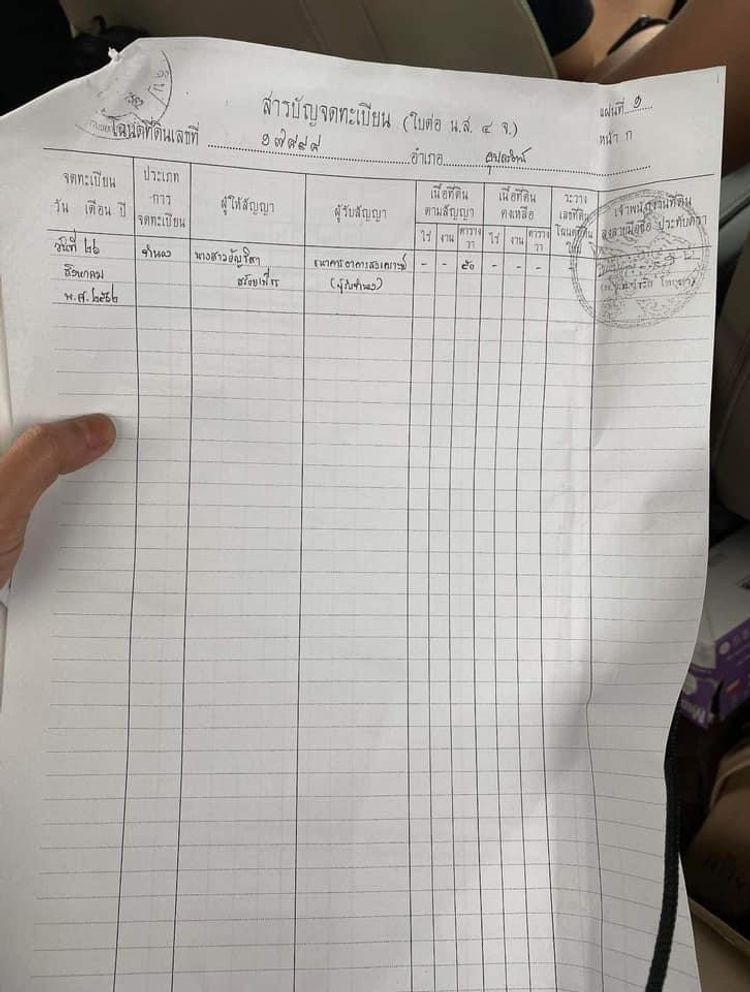 สารบัญจดทะเบียน (ใบต่อ น.ส. ๔ จ.)
แผ่นที่ ๑
โฉนดที่ดินเลขที่ ๑๗๙๙๔ อำเภอ
หน้า ก
จดทะเบียน
วัน เดือน ปี
ประเภท
การ
จดทะเบียน
ผู้ให้สัญญา
ผู้รับสัญญา
เนื้อที่ดิน
ตามสัญญา
เนื้อที่ดิน
คงเหลือ
ระวาง
เลขที่ดิน
โฉนดที่ดิน
ใหม่
เจ้าพนักงานที่ดิน
ลงลายมือชื่อ ประทับตรา
ไร่ งาน ตาราง
วา
ไร่ งาน ตาราง
วา
วันที่ ๒๖ จำนอง นางสาว ธนาคารอาคารสงเคราะห์ - - ๕๐ - - -
สิงหาคม (ผู้รับจำนอง)
พ.ศ. ๒๕๖๒